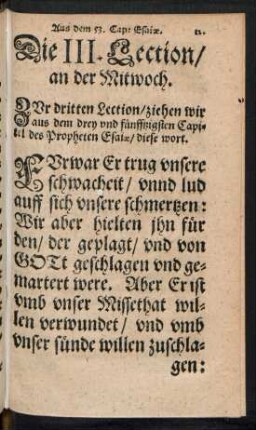 Aus dem 53. Cap: Esaiæ. 11.
Die III. Lection/
an der Mitwoch.
ZVr dritten Lection/ziehen wir
aus dem drey vnd fünffzigsten Capi-
tel des Propheten Esaiæ/ diese wort.
FVrwar Er trug vnsere
schwacheit / vnnd lud
auff sich vnsere schmertzen:
Wir aber hielten jhn für
den/ der geplagt/ vnd von
GOTt geschlagen vnd ge-
martert were. Aber Er ist
vmb vnser Missethat wil-
len verwundet/ vnd vmb
vnser sünde willen zuschla-
gen: